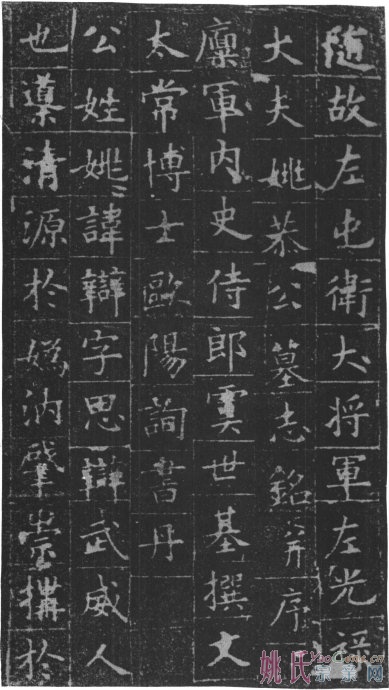 隨故左屯衛大将軍左光禄
大夫姚恭公墓志銘并序
廩軍内史侍郎虞世基撰文
太常博士歐陽詢書丹
公姓姚諱辯字思辯武威人
也導清源於媯汭肇崇構於
姚氏宗亲网